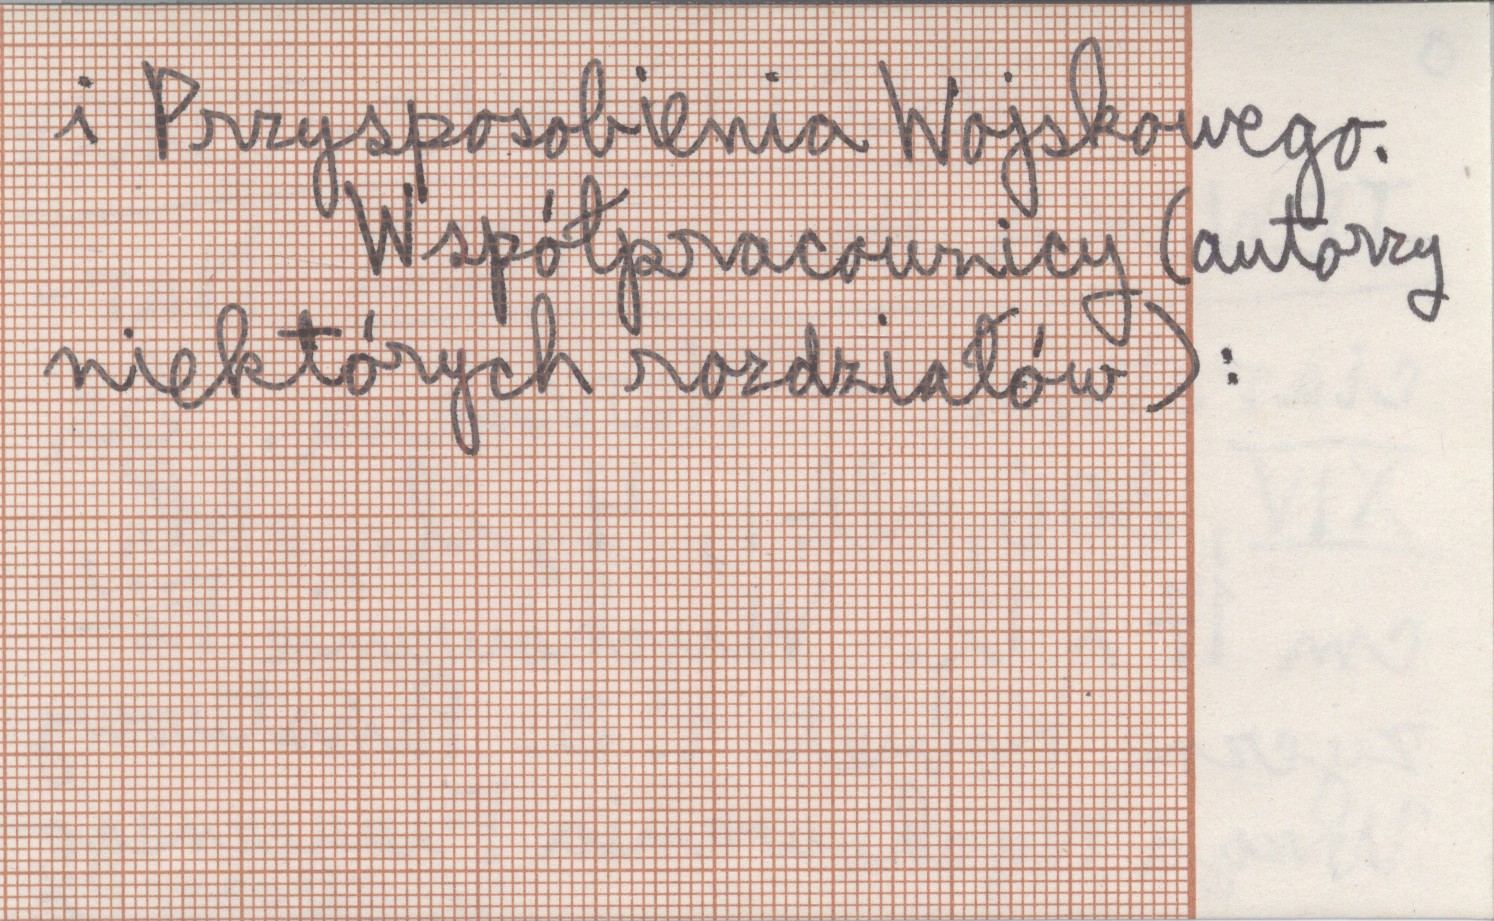 i Przysposobienia Wojskowego.
Współpracownicy (autorzy
niektórych rozdziałów):